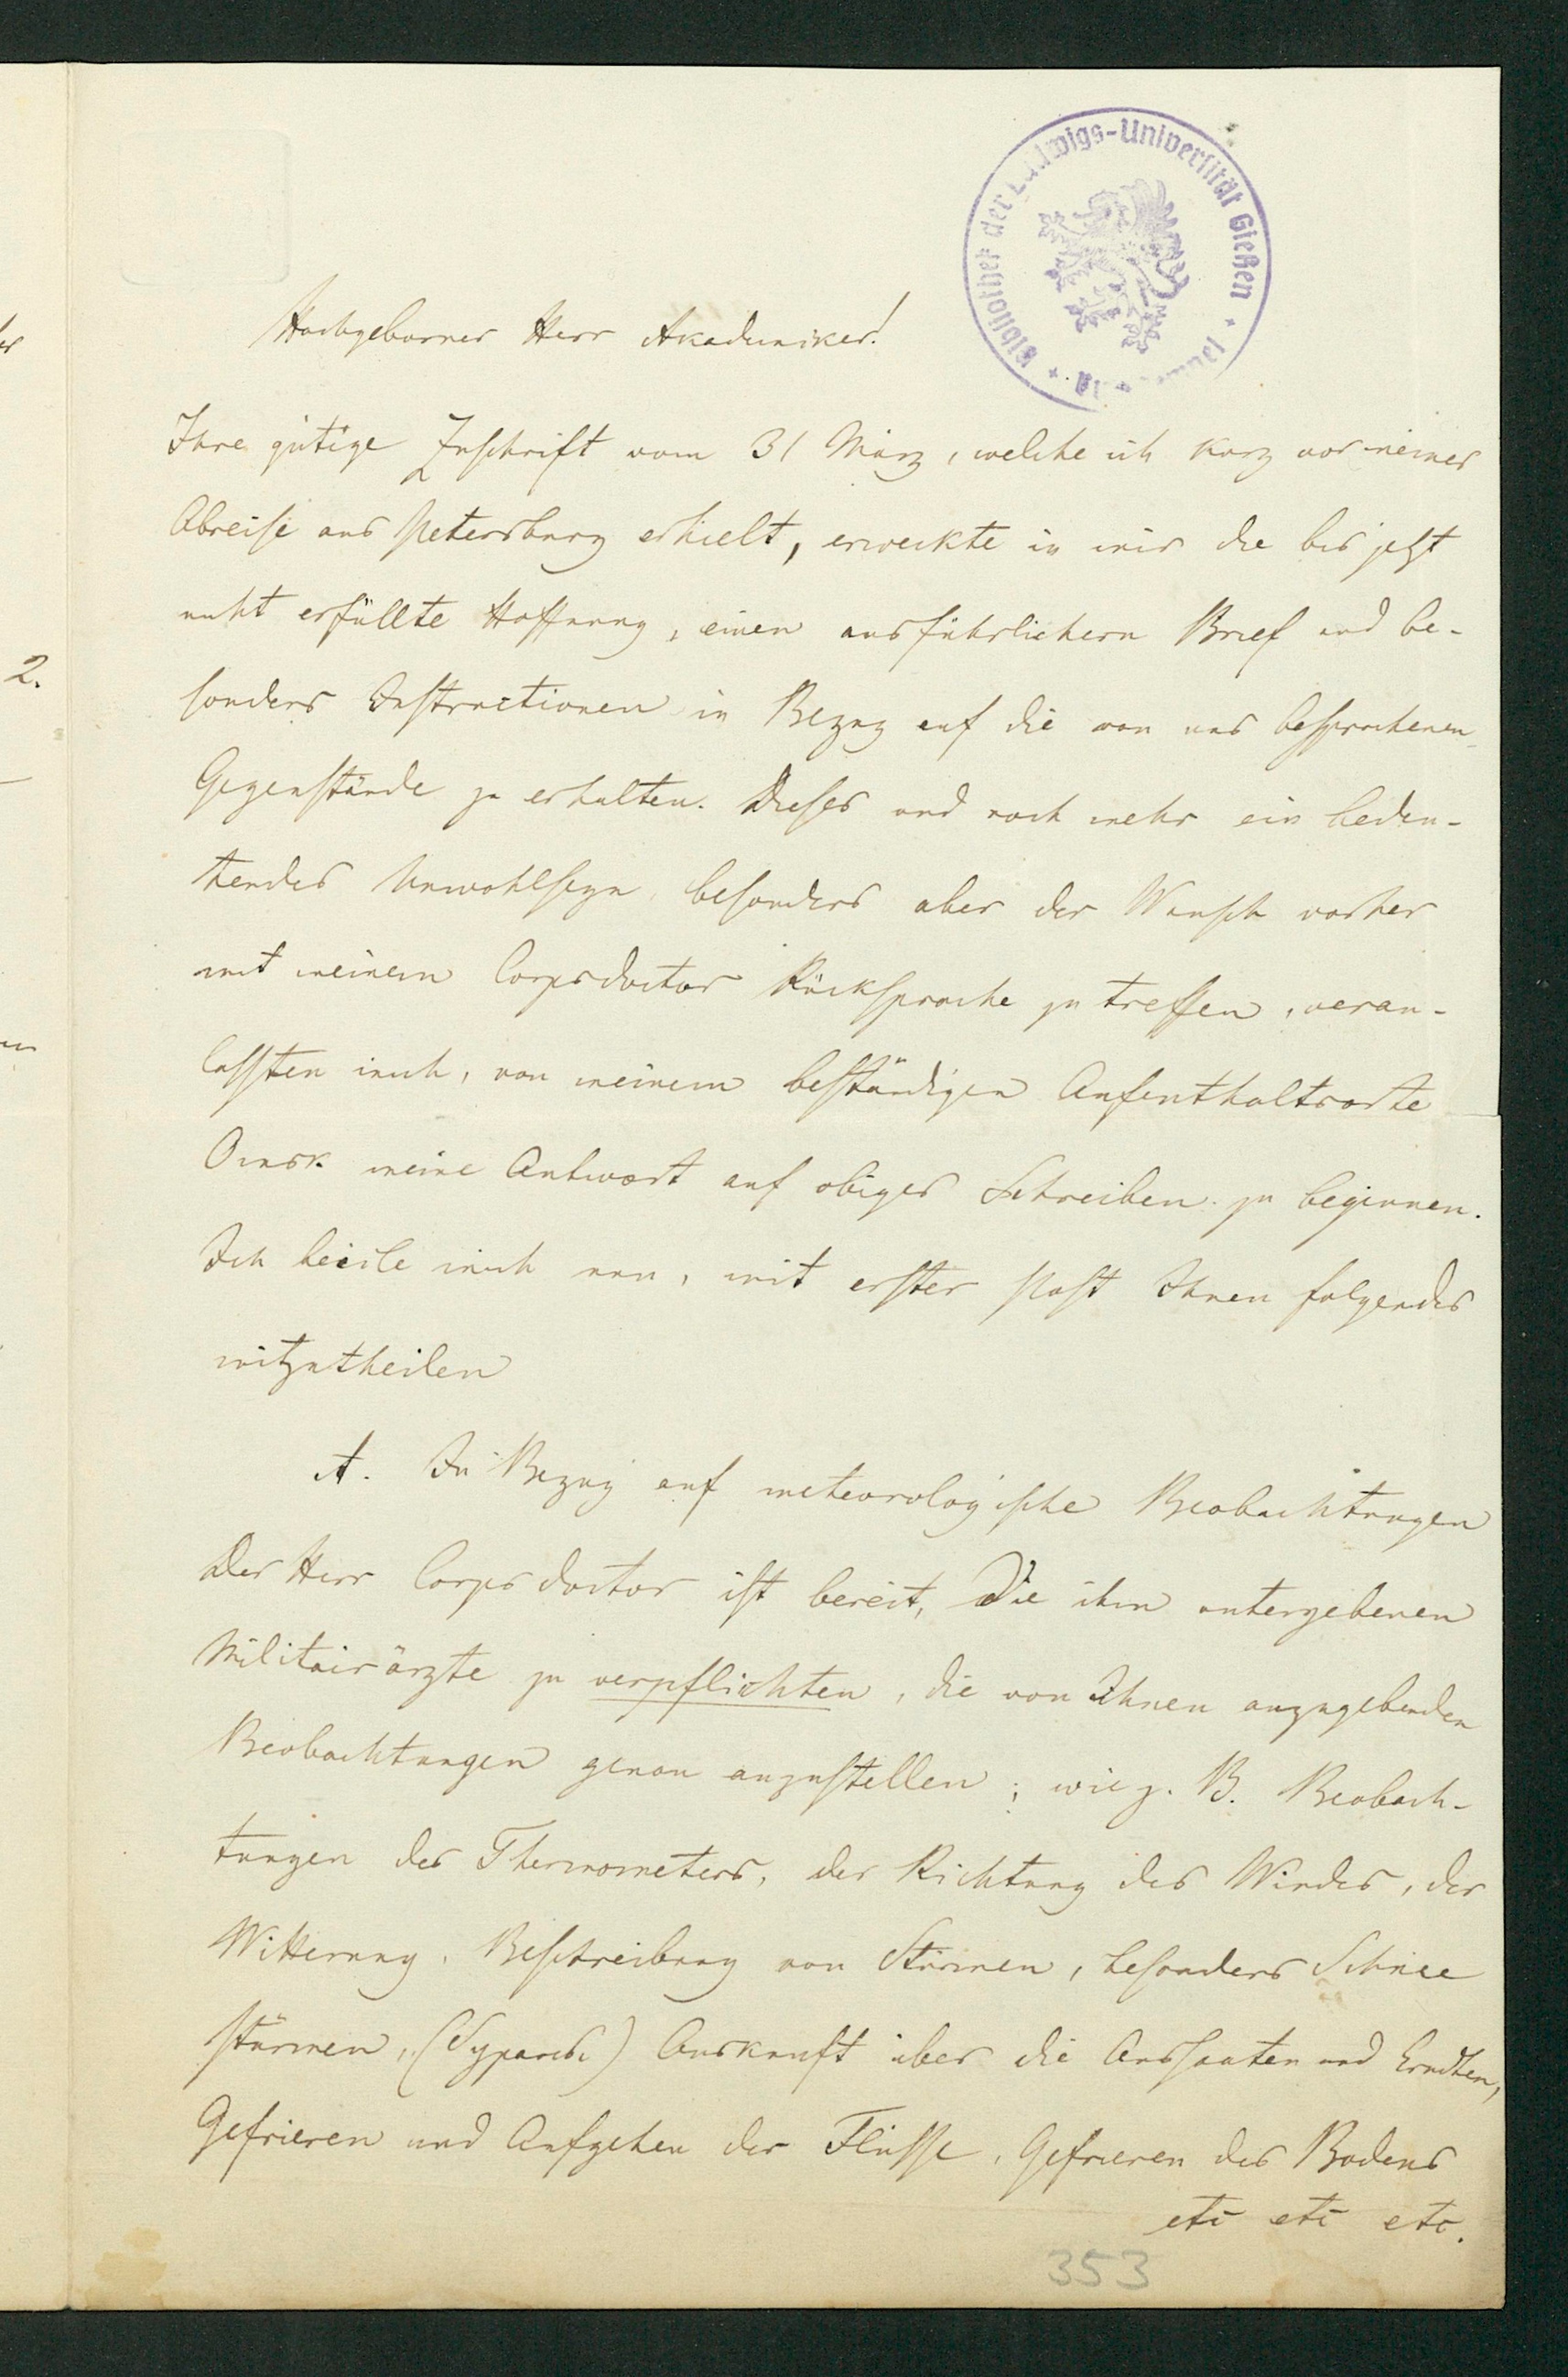 Bibliothek der Ludwigs-Universität Gießen
Hochgeborner Herr Akademiker!
Ihre gütige Zuschrift vom 31 März, welche ich kurz vor meiner
Abreise aus Petersburg erhielt, erweckte in mir die bis jetzt
nicht erfüllte Hoffnung, einen ausführlichern Brief und be-
sonders Instructionen in Bezug auf die von uns besprochenen
2.
Gegenstände zu erhalten. Dieses und noch mehr ein bedeu-
tendes Unwohlseyn, besonders aber der Wunsch vorher
mit meinem Corpsdoctor Rücksprache zu treffen, veran-
lassten mich, von meinem beständigen Aufenthaltsorte
Omsk meine Antwort auf obiges Schreiben zu beginnen.
Ich beeile mich nun, mit erster Post Ihnen folgendes
mitzutheilen
A. In Bezug auf meteorologische Beobachtungen
Der Herr Corpsdoctor ist bereit, die ihm untergebenen
Militairärzte zu verpflichten, die von Ihnen anzugebenden
Beobachtungen genau anzustellen; wie z. B. Beobach-
tungen des Thermometers, der Richtung des Windes, der
Witterung. Beschreibung von Stürmen, besonders Schnee
stürmen, Auskunft über die Aussaaten und Erndten,
Gefrieren und Aufgehen der Flüsse, Gefrieren des Bodens
etc etc etc.
353